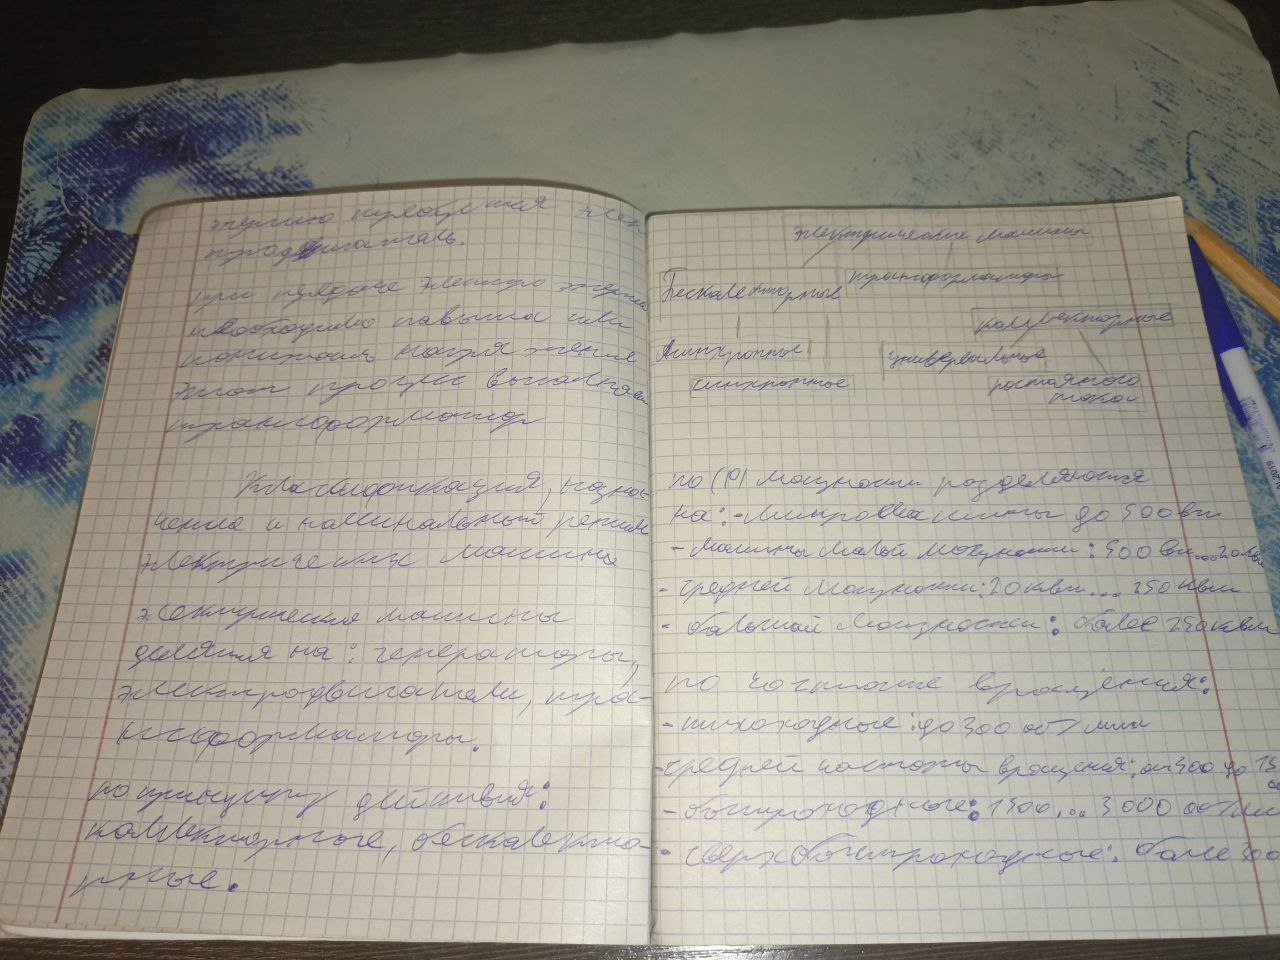 энергию
при передаче электро энергии
необходимо повыша или
понижать напряжение
этот процес выполняет
трансформатор
Классификация, назна-
чение и номинальный режим
электрических машин
электрические машины
делятся на: генераторы,
электродвигатели, тра-
нсформаторы.
по принципу действия:
коллекторные, бесколекто-
рные.
Электрические машины
трансформаторы
Бесколекторные
коллекторные
Асинхронные
универсальные
синхронные
постоянного
тока
по (P) мощности разделяются
на: - микромашины до 500 вт
- машины малой мощности: 500 вт...20
- средней мощности: 20 квт... 250 квт
- большой мощности: более 250 квт
по частоте вращения:
- тихоходные: до 300 об/мин
- средней частоты вращения: от 300 до 15
- быстроходные: 1500... 3000 об/мин
- сверхбыстроходные: более 300